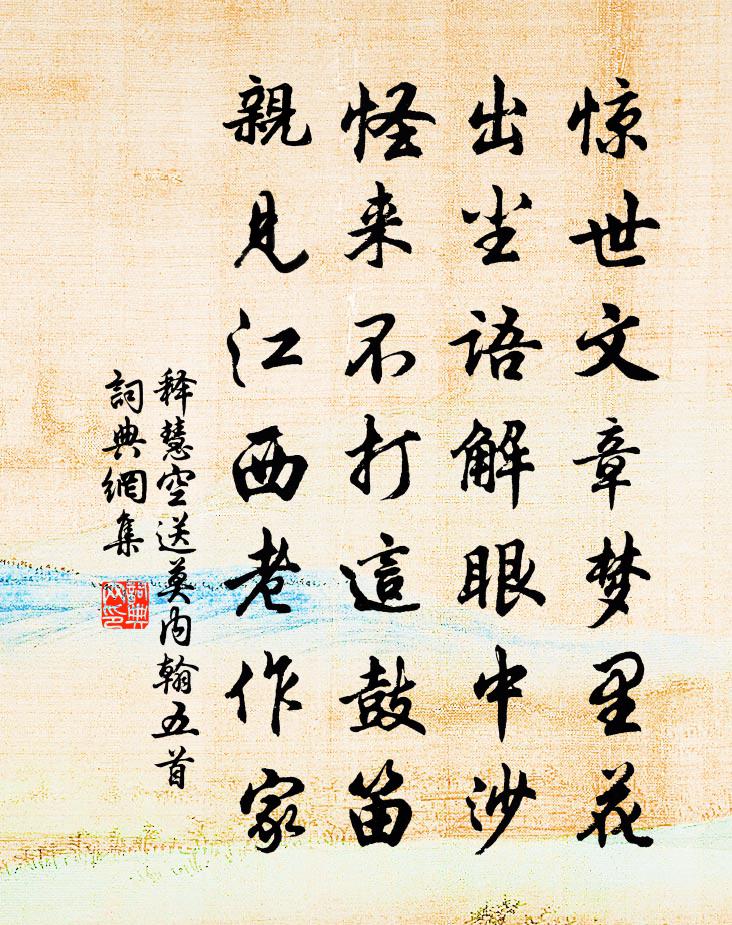 惊世文章梦里花
出尘语解眼中沙
怪来不打這鼓笛
親見江西老作家
释慧空送莫内翰五首
詞典網集
詞典